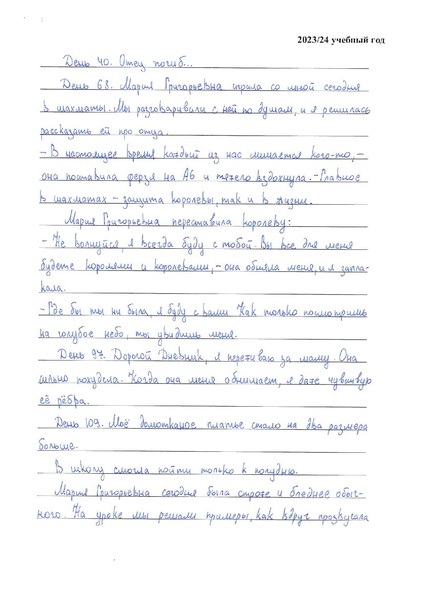 2023/24 учебный год
День 40. Отец погиб...
День 68. Мария Григорьевна играла со мной сегодня
в шахматы. Мы разговаривали с ней по душам, и я решилась
рассказать ей про отца.
- В настоящее время каждый из нас лишается кого-то, -
она поставила ферзя на А6 и тяжело вздохнула. - Главное
в шахматах - защита королевы, так и в жизни.
Мария Григорьевна переставила королеву:
- Не волнуйся, я всегда буду с тобой. Вы все для меня
будете королями и королевами, - она обняла меня, и я запла-
кала.
- Где бы ты ни была, я буду с вами. Как только посмотришь
на голубое небо, ты увидишь меня.
День 97. Дорогой Дневник, я переживаю за маму. Она
сильно похудела. Когда она меня обнимает, я даже чувствую
её рёбра.
День 109. Моё домотканое платье стало на два размера
больше.
В школу смогла пойти только к полудню.
Мария Григорьевна сегодня была строже и бледнее обыч-
ного. На уроке мы решали примеры, как вдруг прозвучала